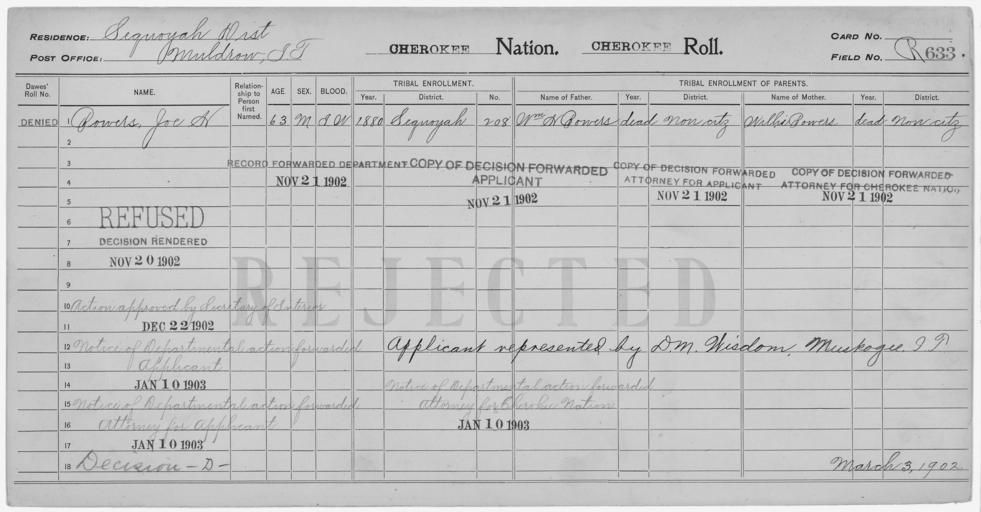 RESIDENCE: Sequoyah Dist
POST OFFICE: Muldrow, I T
CHEROKEE Nation. CHEROKEE Roll.
CARD NO.
FIELD NO. R 633.
Dawes' Roll No. NAME. Relation-ship to Person first Named. AGE. SEX. BLOOD. TRIBAL ENROLLMENT. TRIBAL ENROLLMENT OF PARENTS.
Year. District. No. Name of Father. Year. District. Name of Mother. Year. District.
DENIED 1 Powers, Joe H 63 M I W 1880 Sequoyah 208 Wm H Powers dead non citz Willie Powers dead non citz
2
3 RECORD FORWARDED DEPARTMENT COPY OF DECISION FORWARDED COPY OF DECISION FORWARDED COPY OF DECISION FORWARDED
4 NOV 21 1902 APPLICANT ATTORNEY FOR APPLICANT ATTORNEY FOR CHEROKEE NATION
5 NOV 21 1902 NOV 21 1902 NOV 21 1902
6 REFUSED
7 DECISION RENDERED
8 NOV 20 1902
REJECTED
9
10 Action approved by Secretary of Interior
11 DEC 22 1902
12 Notice of Departmental action forwarded Applicant represented by DM. Wisdom, Muskogee, I T
13 Applicant
14 JAN 10 1903 Notice of Departmental action forwarded
15 Notice of Departmental action forwarded Attorney for Cherokee Nation
16 Attorney for Applicant JAN 10 1903
17 JAN 10 1903
18 Decision - D - March 3, 1902